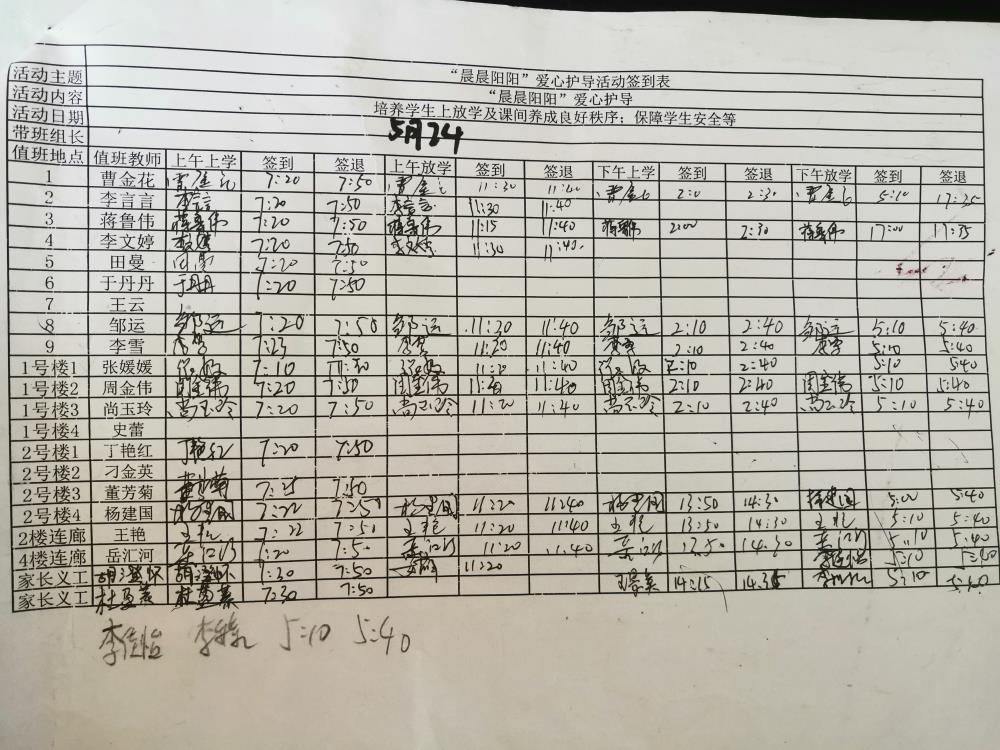 活动主题 “晨晨阳阳”爱心护导活动签到表
活动内容 “晨晨阳阳”爱心护导
活动日期 培养学生上放学及课间养成良好秩序；保障学生安全等
带班组长 5月24
值班地点 值班教师 上午上学 签到 签退 上午放学 签到 签退 下午上学 签到 签退 下午放学 签到 签退
1 曹金花 曹金花 7:20 7:50 曹金花 11:30 11:40 曹金花 2:10 2:30 曹金花 5:10 17:35
2 李言言 李言言 7:20 7:50 李言言 11:30 11:40
3 蒋鲁伟 蒋鲁伟 7:20 7:50 蒋鲁伟 11:15 11:40 蒋鲁伟 2:00 2:30 蒋鲁伟 17:00 17:35
4 李文婷 李文婷 7:20 7:50 李文婷 11:30 11:40
5 田曼 田曼 7:20 7:50
6 于丹丹 于丹丹 7:20 7:50
7 王云
8 邹运 邹运 7:20 7:50 邹运 11:30 11:40 邹运 2:10 2:40 邹运 5:10 5:40
9 李雪 李雪 7:23 7:50 李雪 11:30 11:40 李雪 2:10 2:40 李雪 5:10 5:40
1号楼1 张媛媛 7:10 11:20 11:40 2:10 2:40 5:10 5:40
1号楼2 周金伟 周金伟 7:20 7:50 周金伟 11:40 周金伟 2:10 2:40 周金伟 5:10 5:40
1号楼3 尚玉玲 尚玉玲 7:20 7:50 尚玉玲 11:20 11:40 尚玉玲 2:10 2:40 尚玉玲 5:10 5:40
1号楼4 史蕾
2号楼1 丁艳红 丁艳红 7:20 7:50
2号楼2 刁金英
2号楼3 董芳菊 董芳菊 7:25 7:50
2号楼4 杨建国 杨建国 7:22 7:51 杨建国 11:20 11:40 杨建国 13:50 14:30 杨建国 5:00 5:40
2楼连廊 王艳 王艳 7:22 7:51 王艳 11:20 11:40 王艳 13:50 14:30 王艳 5:10 5:40
4楼连廊 岳汇河 岳汇河 7:20 7:50 岳汇河 11:20 11:40 岳汇河 13:50 14:30 岳汇河 5:10 5:40
家长义工 胡澄怀 胡澄怀 7:30 7:50 11:20 李佳怡 5:10 5:40
家长义工 杜盈美 杜盈美 7:30 7:50 14:15 14:35 5:10 5:40
李佳怡 5:10 5:40